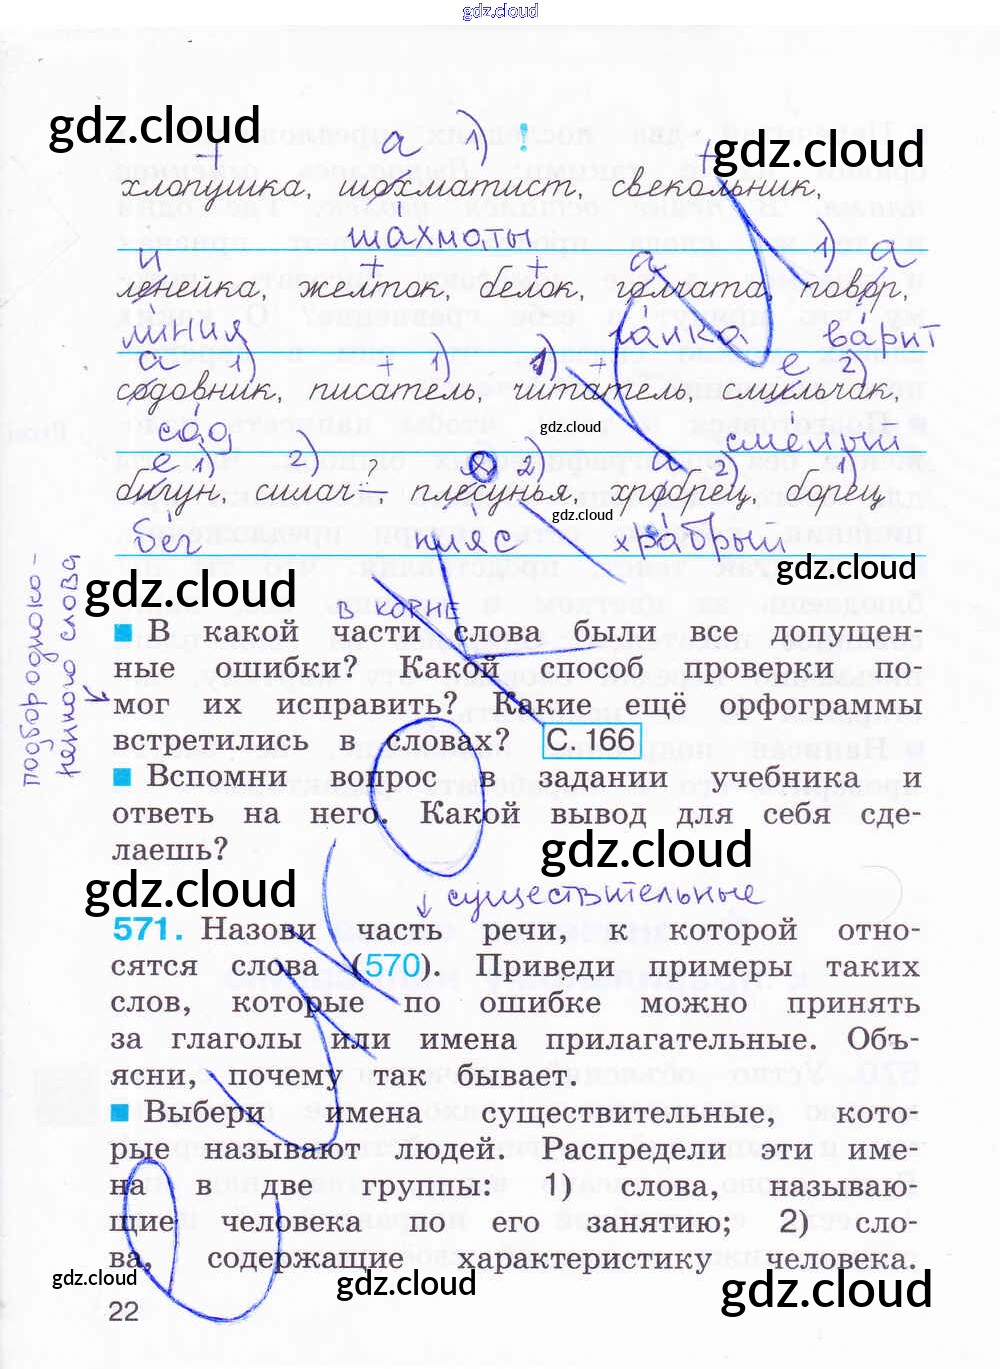 gdz.cloud
gdz.cloud
gdz.cloud
+ а 1) ! +
хлопушка, шохматист, свекольник,
шахматы
и + + а 1) а
ленейка, желток, белок, голчата, повор,
линия галка варит
а 1) + 1) 1) + е 2)
содовник, писатель, читатель, смильчак,
сад смелый
е 1) 2) ? я 2) а 2) 1)
бигун, силач –, плесунья, хробрец, борец
бег пляс храбрый
gdz.cloud
gdz.cloud
gdz.cloud
gdz.cloud
в корне
В какой части слова были все допущен-
ные ошибки? Какой способ проверки по-
мог их исправить? Какие ещё орфограммы
встретились в словах? С. 166
подбор однокo-
ренного слова
Вспомни вопрос в задании учебника и
ответь на него. Какой вывод для себя сде-
лаешь?
gdz.cloud
gdz.cloud
↓ существительные
571. Назови часть речи, к которой отно-
сятся слова (570). Приведи примеры таких
слов, которые по ошибке можно принять
за глаголы или имена прилагательные. Объ-
ясни, почему так бывает.
Выбери имена существительные, кото-
рые называют людей. Распредели эти име-
на в две группы: 1) слова, называю-
щие человека по его занятию; 2) сло-
ва, содержащие характеристику человека.
gdz.cloud
gdz.cloud
gdz.cloud
22